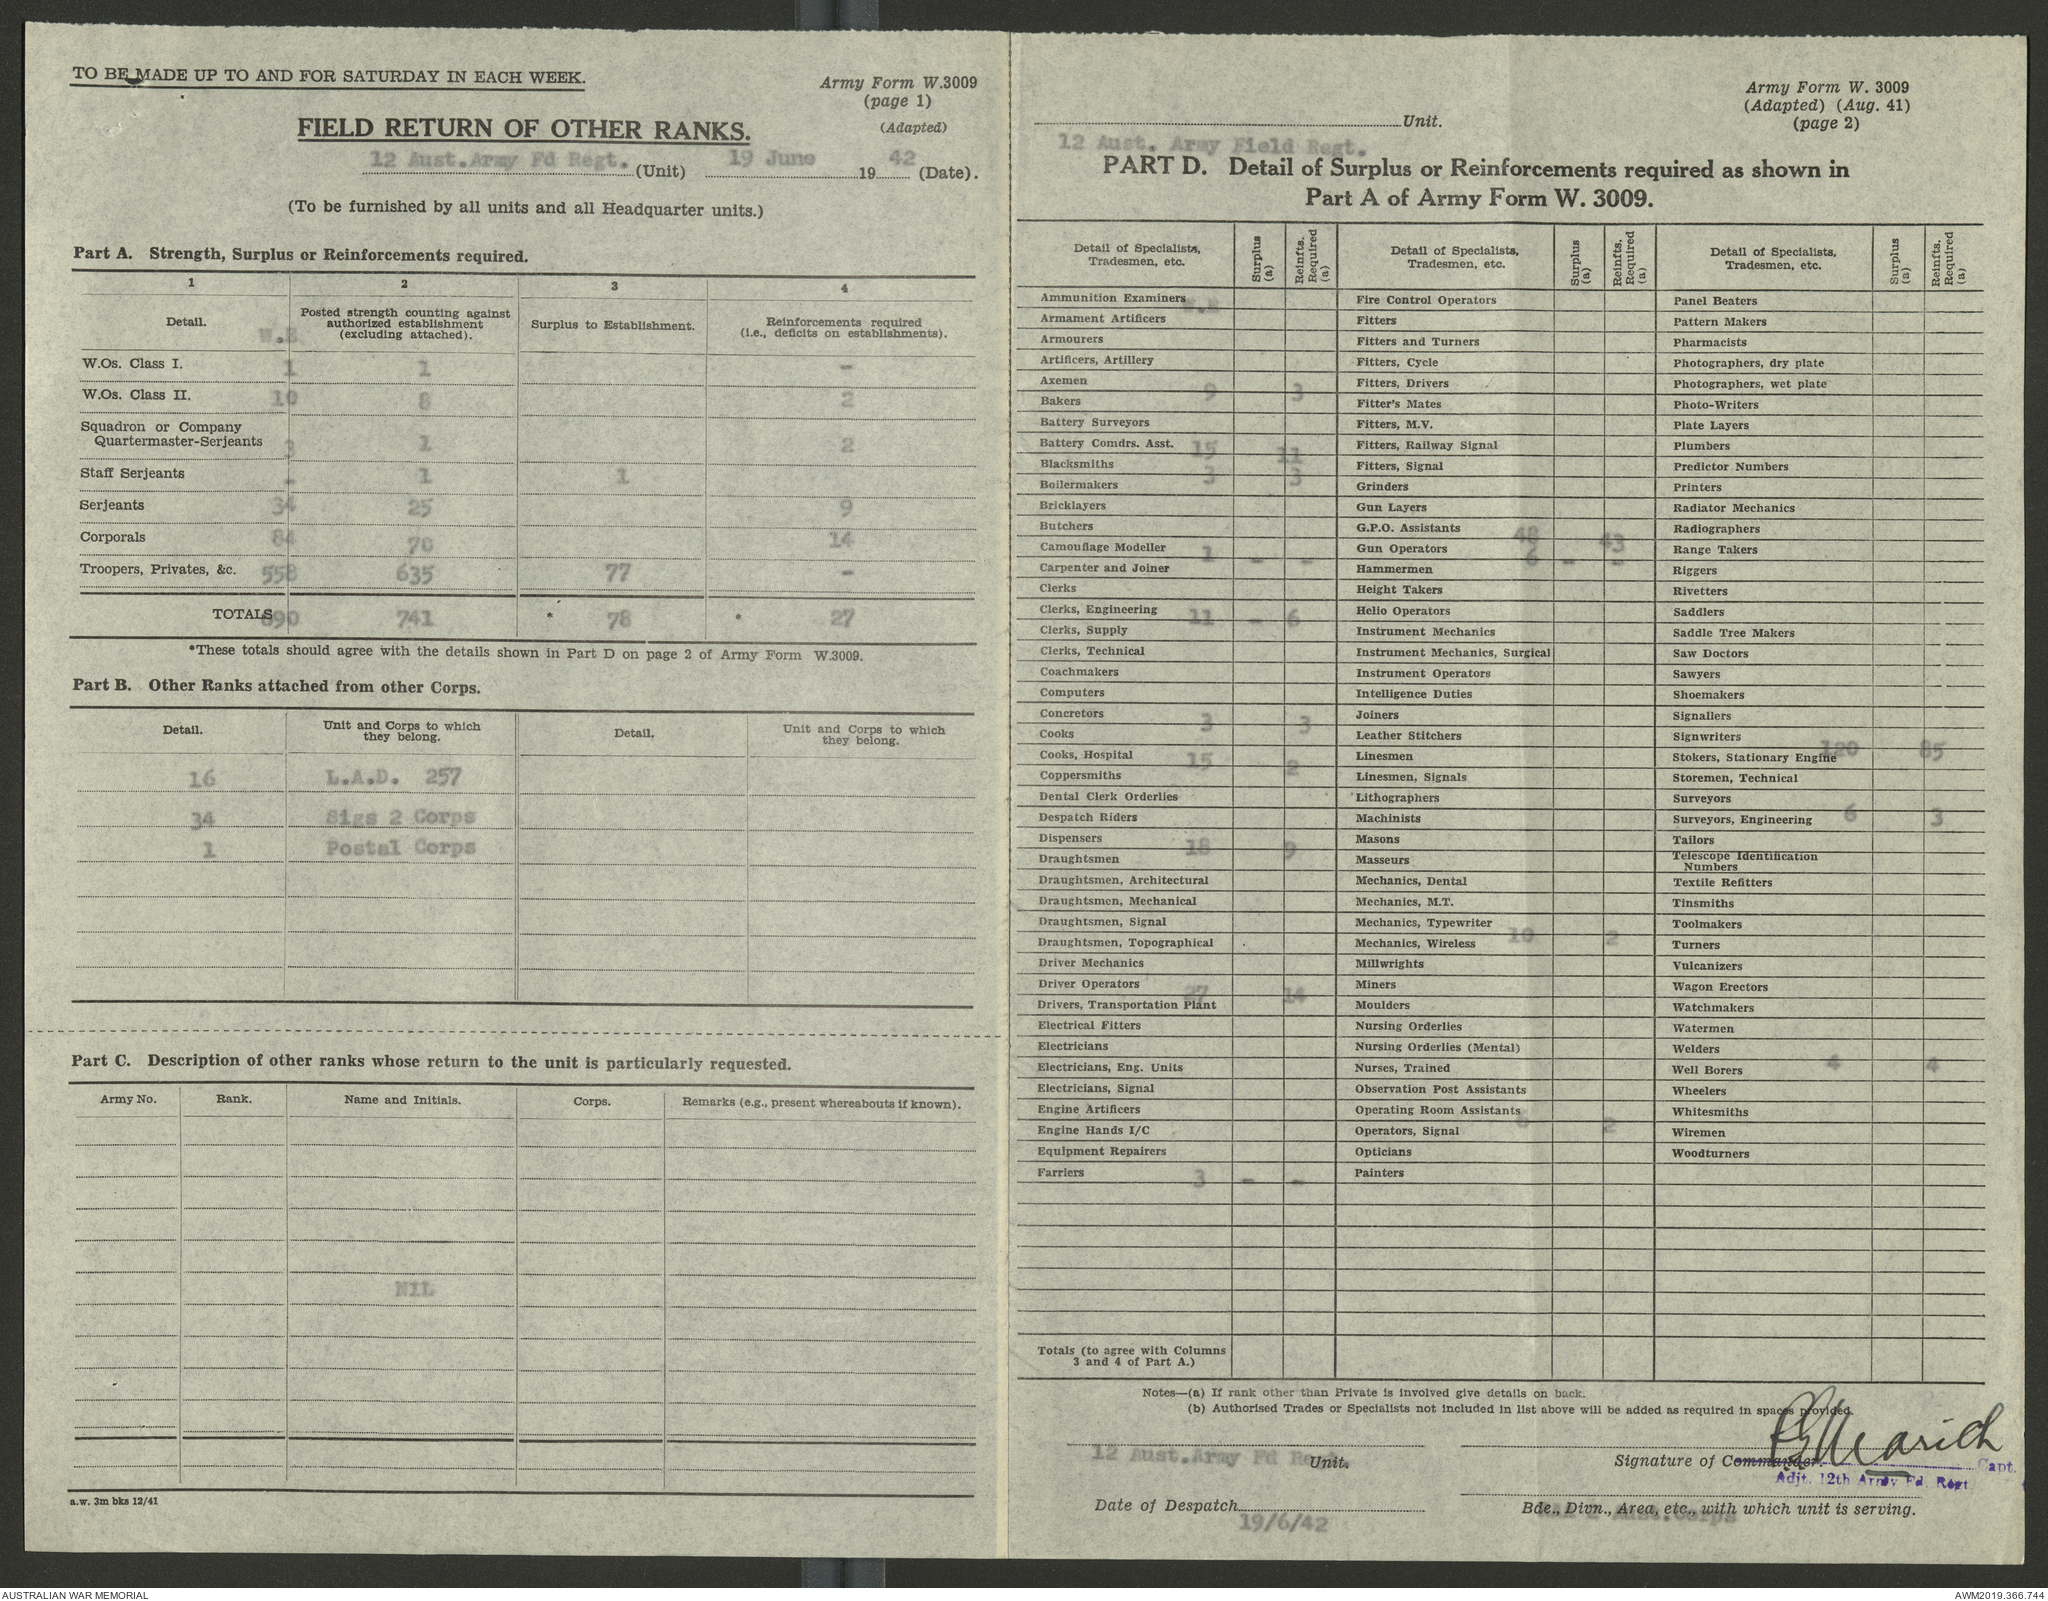 TO BE MADE UP TO AND FOR SATURDAY IN EACH WEEK.
Army Form W.3009
(page 1)
(Adapted)
FIELD RETURN OF OTHER RANKS.
12 Aust.Army Fd Regt. (Unit) 19 June 1942 (Date).
(To be furnished by all units and all Headquarter units.)
Part A. Strength, Surplus or Reinforcements required.
1 2 3 4
Detail. W.E Posted strength counting against authorized establishment (excluding attached). Surplus to Establishment. Reinforcements required (i.e., deficits on establishments).
W.Os. Class I. 1 1 -
W.Os. Class II. 10 8 2
Squadron or Company
Quartermaster-Serjeants 3 1 2
Staff Serjeants - 1 1
Serjeants 34 25 9
Corporals 84 70 14
Troopers, Privates, &c. 558 635 77 -
TOTALS 690 741 * 78 * 27
*These totals should agree with the details shown in Part D on page 2 of Army Form W.3009.
Part B. Other Ranks attached from other Corps.
Detail. Unit and Corps to which they belong. Detail. Unit and Corps to which they belong.
16 L.A.D. 257
34 Sigs 2 Corps
1 Postal Corps
Part C. Description of other ranks whose return to the unit is particularly requested.
Army No. Rank. Name and Initials. Corps. Remarks (e.g., present whereabouts if known).
NIL
a.w. 3m bks 12/41
Army Form W. 3009
(Adapted) (Aug. 41)
(page 2)
Unit.
12 Aust. Army Field Regt.
PART D. Detail of Surplus or Reinforcements required as shown in
Part A of Army Form W. 3009.
Detail of Specialists, Tradesmen, etc. Surplus (a) Reinfts. Required (a)
W.E
Ammunition Examiners
Armament Artificers
Armourers
Artificers, Artillery
Axemen 9 3
Bakers
Battery Surveyors
Battery Comdrs. Asst. 15 11
Blacksmiths 3 3
Boilermakers
Bricklayers
Butchers
Camouflage Modeller 1 - -
Carpenter and Joiner
Clerks
Clerks, Engineering 11 - 6
Clerks, Supply
Clerks, Technical
Coachmakers
Computers
Concretors 3 3
Cooks
Cooks, Hospital 15 2
Coppersmiths
Dental Clerk Orderlies
Despatch Riders
Dispensers 18 9
Draughtsmen
Draughtsmen, Architectural
Draughtsmen, Mechanical
Draughtsmen, Signal
Draughtsmen, Topographical
Driver Mechanics
Driver Operators 27 14
Drivers, Transportation Plant
Electrical Fitters
Electricians
Electricians, Eng. Units
Electricians, Signal
Engine Artificers
Engine Hands I/C
Equipment Repairers
Farriers 3 - -
Totals (to agree with Columns
3 and 4 of Part A.)
Detail of Specialists, Tradesmen, etc. Surplus (a) Reinfts. Required (a)
Fire Control Operators
Fitters
Fitters and Turners
Fitters, Cycle
Fitters, Drivers
Fitter's Mates
Fitters, M.V.
Fitters, Railway Signal
Fitters, Signal
Grinders
Gun Layers
G.P.O. Assistants 48 43
Gun Operators 6 - -
Hammermen
Height Takers
Helio Operators
Instrument Mechanics
Instrument Mechanics, Surgical
Instrument Operators
Intelligence Duties
Joiners
Leather Stitchers
Linesmen
Linesmen, Signals
Lithographers
Machinists
Masons
Masseurs
Mechanics, Dental
Mechanics, M.T.
Mechanics, Typewriter
Mechanics, Wireless 10 2
Millwrights
Miners
Moulders
Nursing Orderlies
Nursing Orderlies (Mental)
Nurses, Trained
Observation Post Assistants
Operating Room Assistants
Operators, Signal 2
Opticians
Painters
Detail of Specialists, Tradesmen, etc. Surplus (a) Reinfts. Required (a)
Panel Beaters
Pattern Makers
Pharmacists
Photographers, dry plate
Photographers, wet plate
Photo-Writers
Plate Layers
Plumbers
Predictor Numbers
Printers
Radiator Mechanics
Radiographers
Range Takers
Riggers
Rivetters
Saddlers
Saddle Tree Makers
Saw Doctors
Sawyers
Shoemakers
Signallers
Signwriters
Stokers, Stationary Engine 120 85
Storemen, Technical
Surveyors
Surveyors, Engineering 6 3
Tailors
Telescope Identification
Numbers
Textile Refitters
Tinsmiths
Toolmakers
Turners
Vulcanizers
Wagon Erectors
Watchmakers
Watermen
Welders
Well Borers 4 4
Wheelers
Whitesmiths
Wiremen
Woodturners
Notes—(a) If rank other than Private is involved give details on back.
(b) Authorised Trades or Specialists not included in list above will be added as required in spaces provided.
12 Aust.Army Fd Regt. Unit.
Signature of Commander Capt.
Adjt. 12th Army Fd. Regt.
Date of Despatch
19/6/42
Bde., Divn., Area, etc., with which unit is serving.
AUSTRALIAN WAR MEMORIAL
AWM2019.366.744